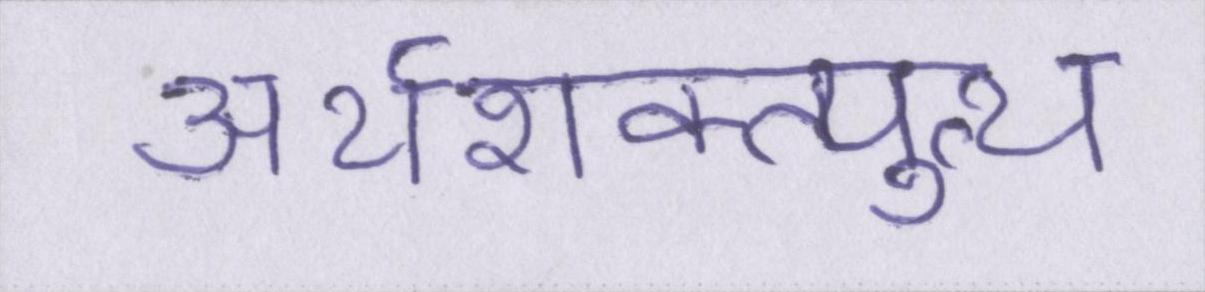 अर्थशक्त्युत्थ